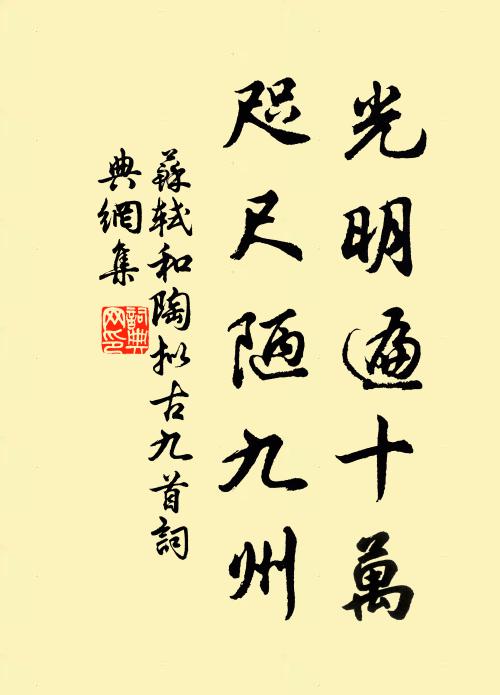 光明遍十萬
咫尺陋九州
蘇軾和陶拟古九首詞
典網集
詞典
网印